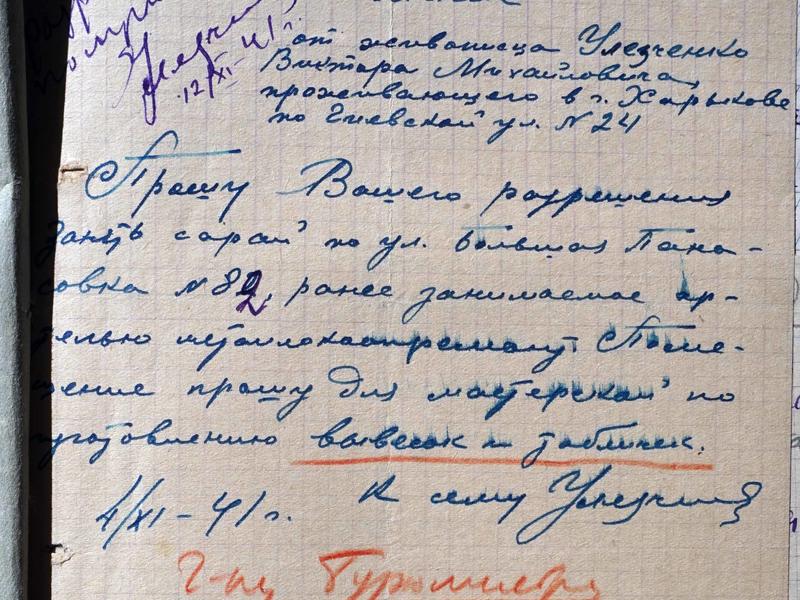 12/XI-41 г.
от живописца Улезченко
Виктора Михайловича,
проживающего в г. Харькове
по Гиевской ул. N 24
Прошу Вашего разрешения
занять сарай по ул. Большая Пана-
совка N 82, ранее занимаемое ар-
телью металлокоопремонт. Поме-
щение прошу для мастерской по
изготовлению вывесок и табличек.
4/XI-41 г. К сему Улезченко
Г-ну Бургомистру